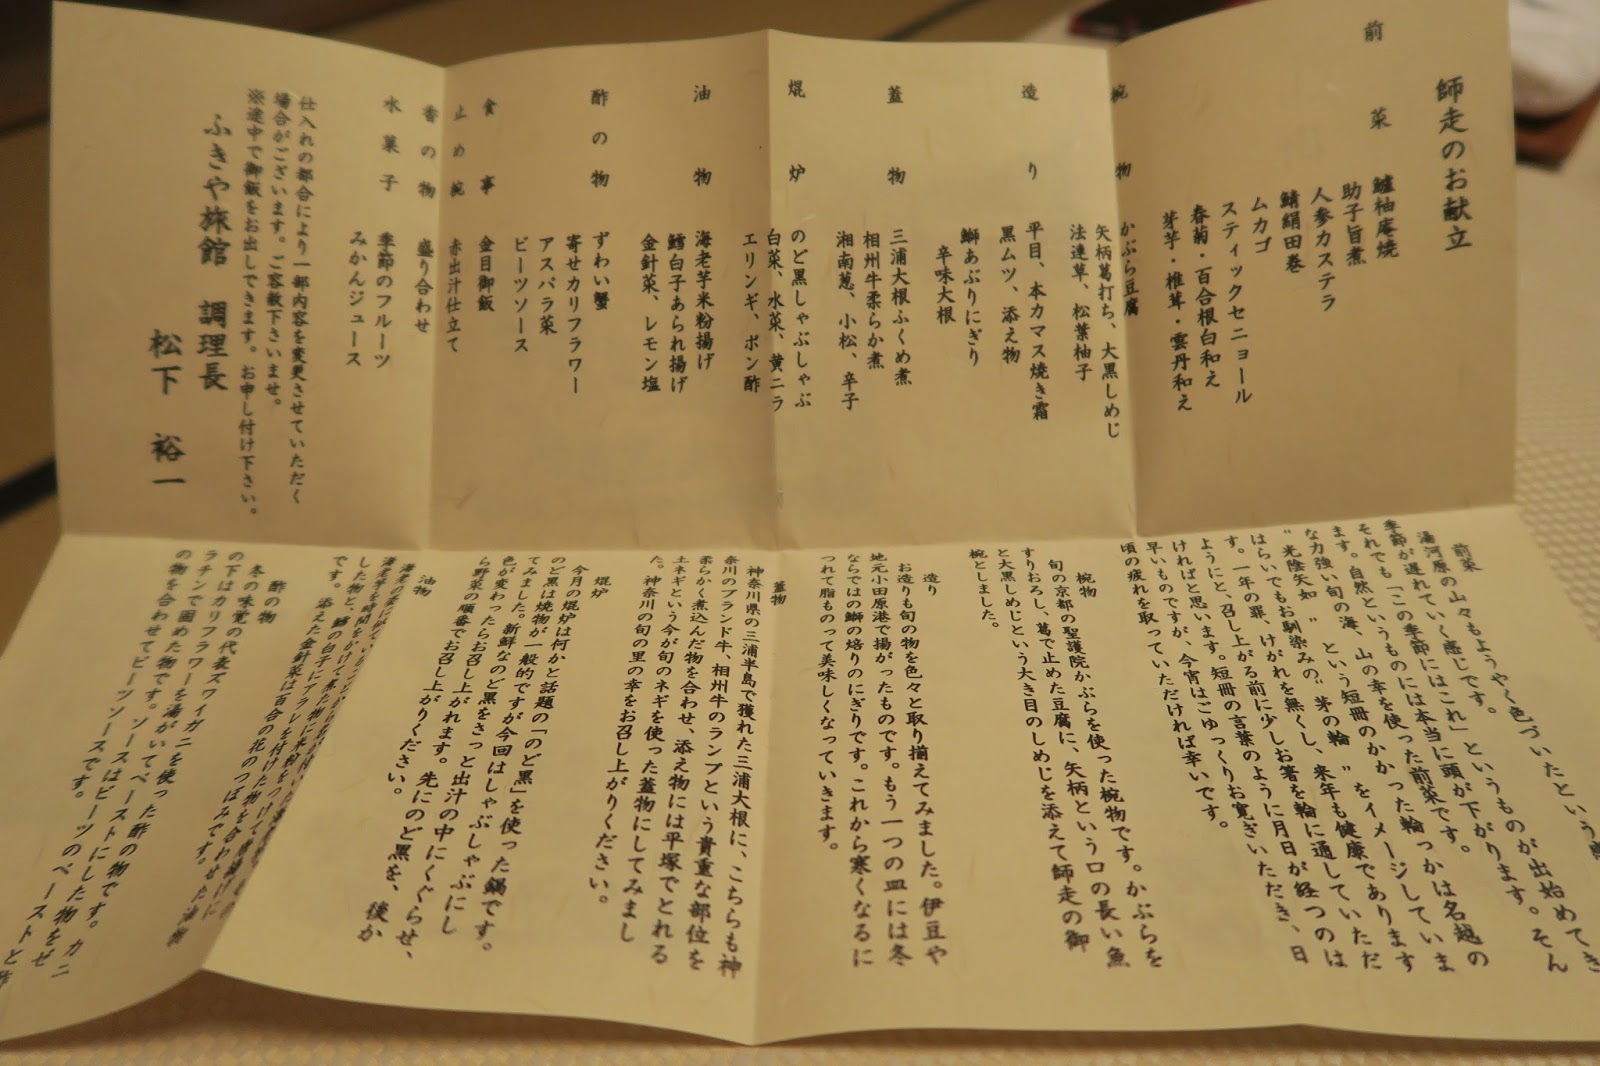 師走のお献立
前菜
鱸柚庵焼
助子旨煮
人参カステラ
鯖絹田巻
ムカゴ
スティックセニョール
春菊・百合根白和え
芽芋・椎茸・雲丹和え
椀物
かぶら豆腐
矢柄葛打ち、大黒しめじ
法蓮草、松葉柚子
造り
平目、本カマス焼き霜
黒ムツ、添え物
鰤あぶりにぎり
辛味大根
蓋物
三浦大根ふくめ煮
相州牛柔らか煮
湘南葱、小松、辛子
焜炉
のど黒しゃぶしゃぶ
白菜、水菜、黄ニラ
エリンギ、ポン酢
油物
海老芋米粉揚げ
鱈白子あられ揚げ
金針菜、レモン塩
酢の物
ずわい蟹
寄せカリフラワー
アスパラ菜
ビーツソース
食事
金目御飯
止め椀
赤出汁仕立て
香の物
盛り合わせ
水菓子
季節のフルーツ
みかんジュース
仕入れの都合により一部内容を変更させていただく
場合がございます。ご容赦下さいませ。
※途中で御飯をお出しできます。お申し付け下さい。
ふきや旅館 調理長
松下 裕一
前菜
湯河原の山々もようやく色づいたという
季節が遅れていく感じです。
それでも「この季節にはこれ」というものが出始めてき
ます。自然というものには本当に頭が下がります。そん
な力強い旬の海、山の幸を使った前菜です。
"光陰矢如"という短冊のかかった輪っかは名越の
はらいでもお馴染みの、"茅の輪"をイメージしていま
す。一年の罪、けがれを無くし、来年も健康であります
ようにと、召し上がる前に少しお箸を輪に通していただ
ければと思います。短冊の言葉のように月日が経つのは
早いものですが、今宵はごゆっくりお寛ぎいただき、日
頃の疲れを取っていただければ幸いです。
椀物
旬の京都の聖護院かぶらを使った椀物です。かぶらを
すりおろし、葛で止めた豆腐に、矢柄という口の長い魚
と大黒しめじという大き目のしめじを添えて師走の御
椀としました。
造り
お造りも旬の物を色々と取り揃えてみました。伊豆や
地元小田原港で揚がったものです。もう一つの皿には冬
ならではの鰤の焙りのにぎりです。これから寒くなるに
つれて脂ものって美味しくなっていきます。
蓋物
神奈川県の三浦半島で獲れた三浦大根に、こちらも神
奈川のブランド牛、相州牛のランプという貴重な部位を
柔らかく煮込んだ物を合わせ、添え物には平塚でとれる
土ネギという今が旬のネギを使った蓋物にしてみまし
た。神奈川の旬の里の幸をお召し上がりください。
焜炉
今月の焜炉は何かと話題の「のど黒」を使った鍋です。
のど黒は焼物が一般的ですが今回はしゃぶしゃぶにし
てみました。新鮮なのど黒をさっと出汁の中にくぐらせ、
色が変わったらお召し上がれます。先にのど黒を、後か
ら野菜の順番でお召し上がりください。
油物
海老芋を時間をかけて煮た物に米粉をつけて
した物と、鱈の白子にアラレを付けた物を合わせた油物
です。添えた金針菜は百合の花のつぼみです。
酢の物
冬の味覚の代表ズワイガニを使った酢の物です。カニ
の下はカリフラワーを湯がいてペーストにした物をゼ
ラチンで固めた物です。ソースはビーツのペーストと酢
の物を合わせてビーツソースです。